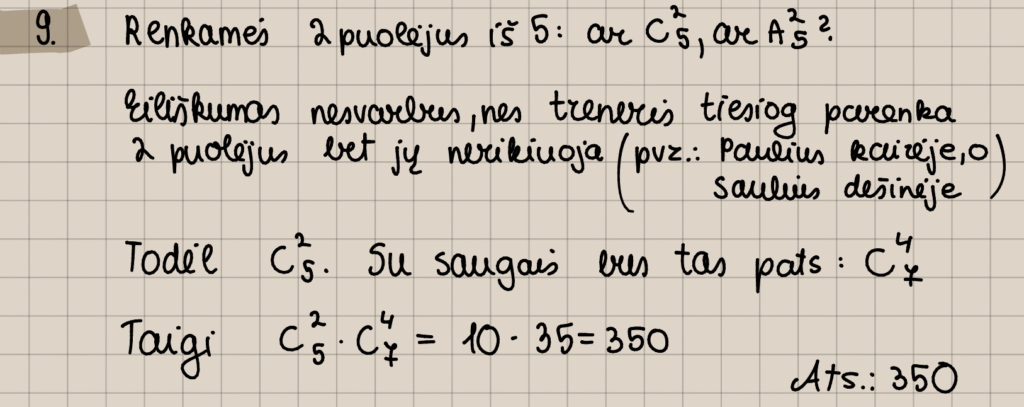 9. Renkamės 2 puolėjus iš 5: ar C₅², ar A₅²?
Eiliškumas nesvarbus, nes treneris tiesiog parenka
2 puolėjus bet jų nerikiuoja (pvz.: Paulius kairėje, o
Saulius dešinėje)
Todėl C₅². Su saugais bus tas pats: C₇⁴
Taigi C₅² · C₇⁴ = 10 · 35 = 350
Ats.: 350